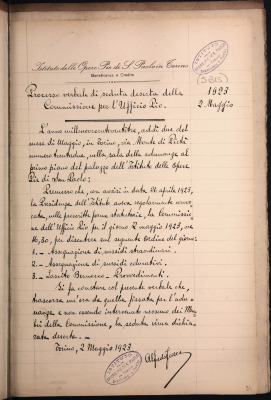 Istituto delle Opere Pie di S. Paolo in Torino
Beneficenza e Credito
(3 BIS)
Processo verbale di seduta deserta della
Commissione per l'Ufficio Pio.
1923
2 Maggio
L'anno millenovecentoventitre, addì due del
mese di Maggio, in Torino, via Monte di Pietà
numero trentadue, nella sala delle adunanze al
primo piano del palazzo dell'Istituto delle Opere
Pie di San Paolo;
Premesso che, con avviso in data 26 aprile 1923,
la Presidenza dell'Istituto aveva regolarmente convo-
cata, nelle prescritte forme statutarie, la Commissio-
ne dell'Ufficio Pio per il giorno 2 maggio 1923, ore
16,30, per discutere sul seguente ordine del giorno:
1.- Assegnazione di sussidi straordinari.
2.- Assegnazione di sussidi educativi.
3.- Lascito - Provvedimenti.
Si fa constare col presente verbale che,
trascorsa un'ora da quella fissata per l'adu-
nanza e non essendo intervenuto nessuno dei Mem-
bri della Commissione, la seduta viene dichia-
rata deserta.-
Torino, 2 Maggio 1923